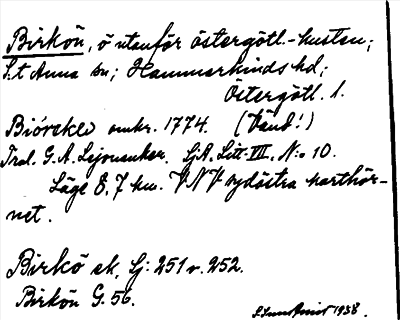 Birkön, ö utanför östergötl.-kusten;
S:t Anna sn; Hammarkinds hd;
Östergötl. l.
Biöreklev omkr. 1774. (Vänd!)
Trol. G. A. Lejonanckar. SjA. Litt. VII. N:o 10.
Läge 8,7 km. VNV sydöstra karthör-
net.
Birkö sk. Sj: 251 v. 252.
Birkön G. 56.
1938.